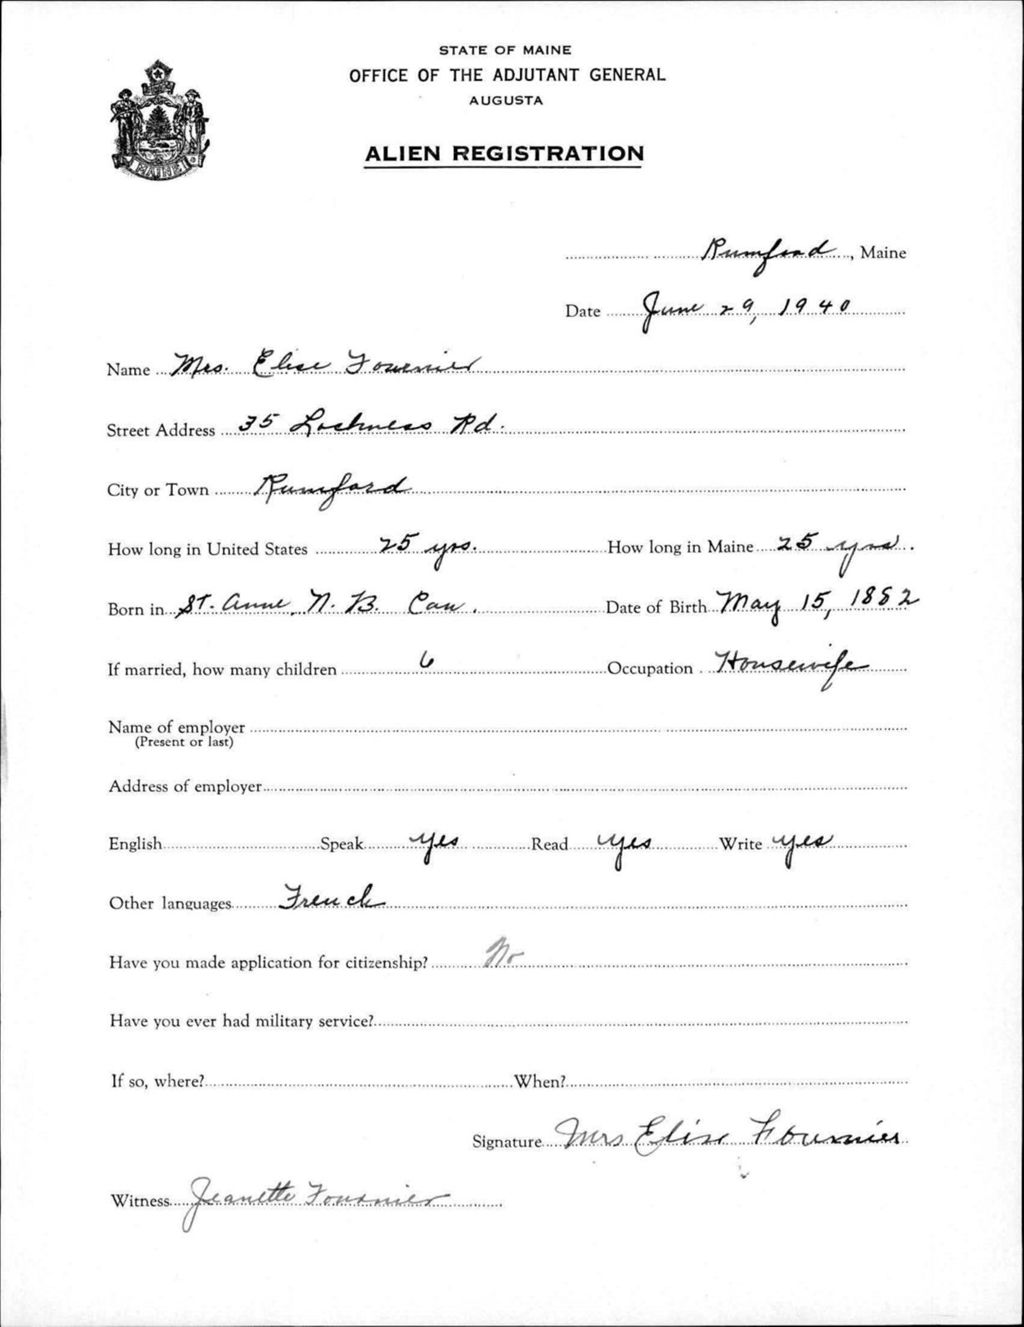 STATE OF MAINE
OFFICE OF THE ADJUTANT GENERAL
AUGUSTA
ALIEN REGISTRATION
MAINE
Rumford, Maine
Date June 29, 1940
Name Mrs. Elise Fournier
Street Address 35 Lochness Rd.
City or Town Rumford
How long in United States 25 yrs. How long in Maine 25 yrs.
Born in St. Anne, N. B. Can. Date of Birth May 15, 1882
If married, how many children 6 Occupation Housewife
Name of employer
(Present or last)
Address of employer
English Speak yes Read yes Write yes
Other languages French
Have you made application for citizenship? No
Have you ever had military service?
If so, where? When?
Signature Mrs Elise Fournier
Witness Jeanette Fournier